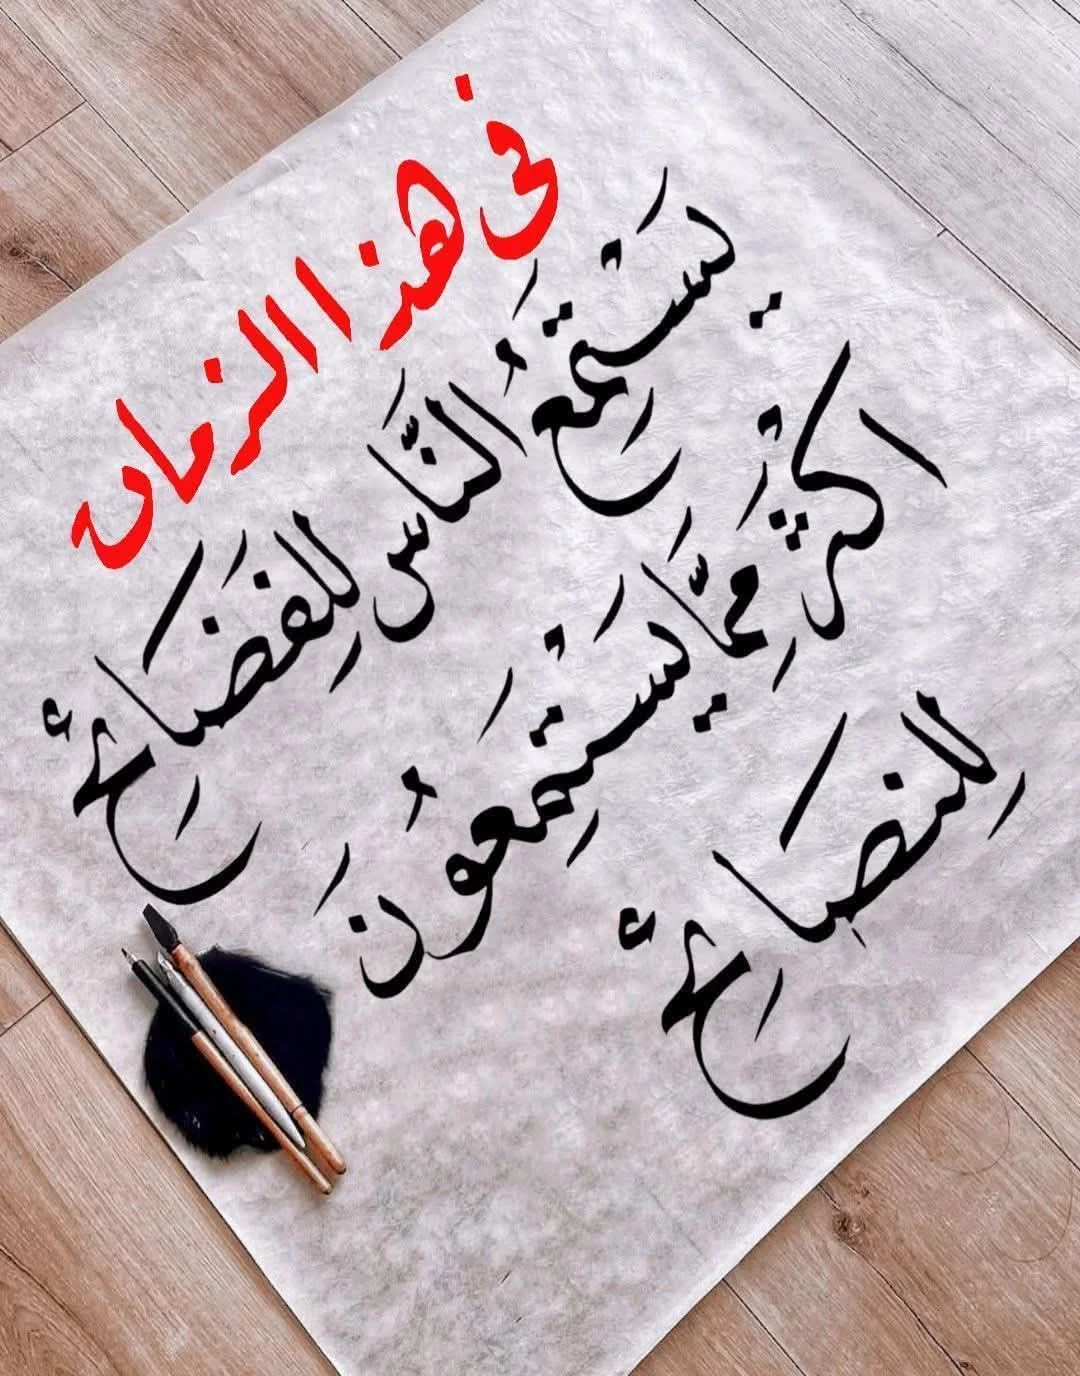 في هذا الزمان
يَسْتَمِعُ النَّاسِ لِلفَضَائِحِ
اكثَرِ مِمَّا يَسْتَمِعُونَ
لِلنصَائِحِ